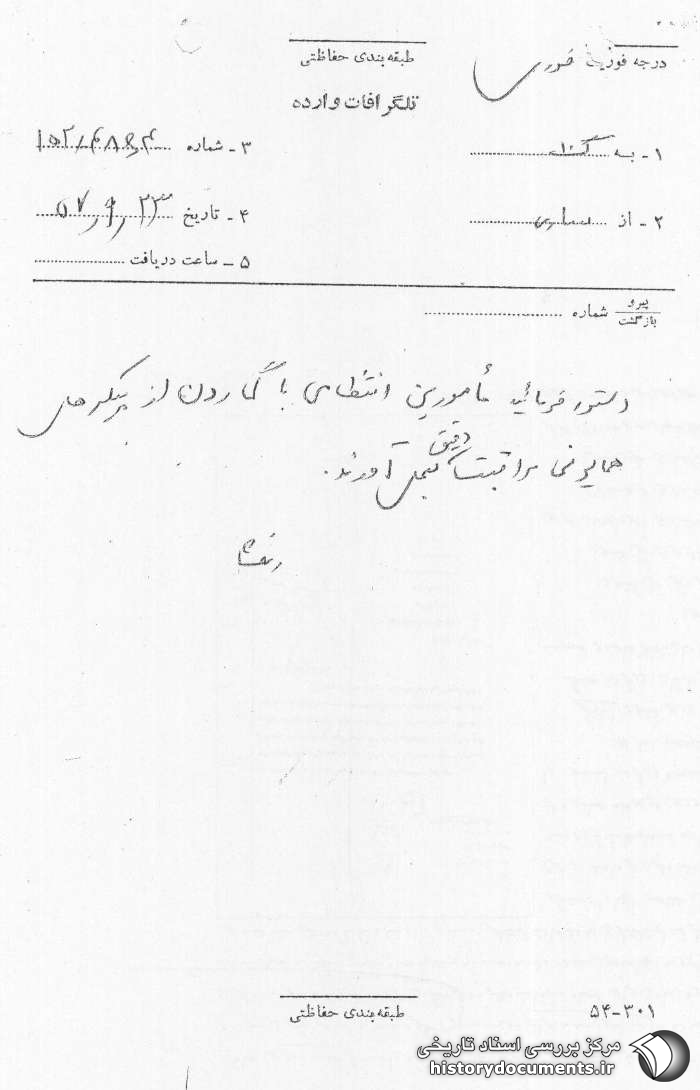 درجه فوریت فوری
طبقه‌بندی حفاظتی
تلگرافات وارده
۱ - به
۳ - شماره
۲ - از ساری
۴ - تاریخ ۵۷٫۹٫۲۳
۵ - ساعت دریافت
پیرو
بازگشت
شماره
دستور فرمائید مأمورین انتظامی با گماردن از پیکره‌های
همایونی مراقبت دقیق بعمل آورند.
طبقه‌بندی حفاظتی
۵۴-۳۰۱
مرکز بررسی اسناد تاریخی
historydocuments.ir